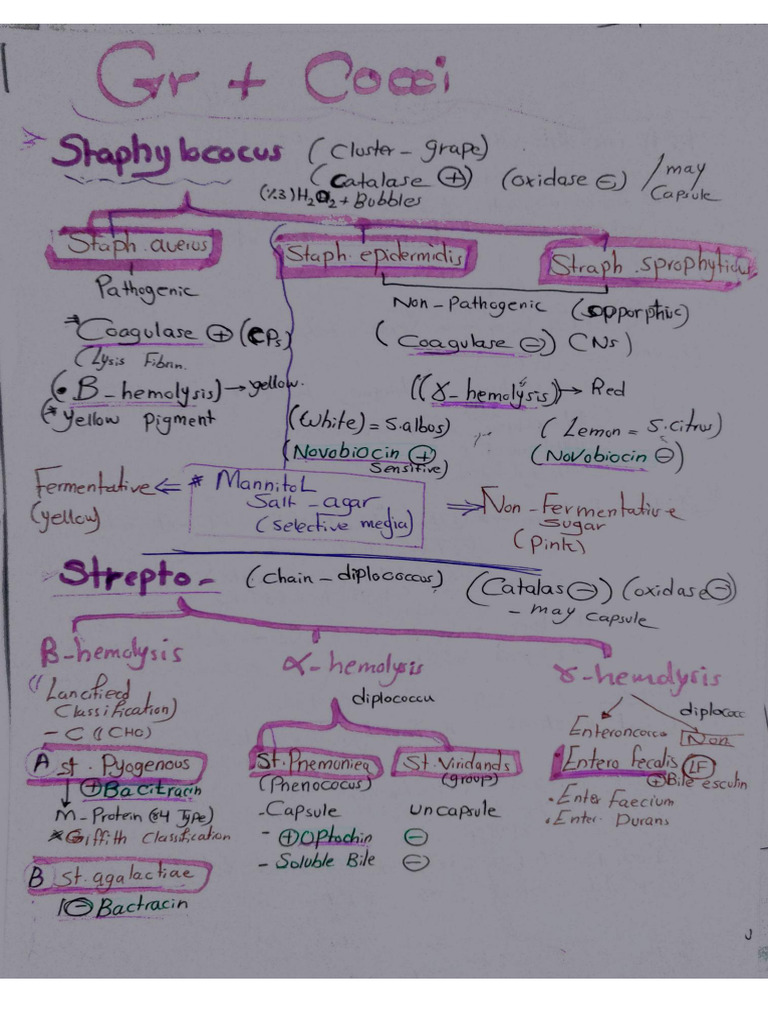 Gr + Cocci
Staphylococus (Cluster - grape)
(Catalase ⊕) (oxidase ⊖) / may Capsule
(%3) H2O2 + Bubbles
Staph. aueius
Staph. epidermidis
Straph. sprophyticus
Pathogenic
Non-Pathogenic (opporphtic)
Coagulase ⊕ (CPs)
(Coagulase ⊖) (CNs)
(Lysis Fibrin.
(• B-hemolysis) → yellow.
((γ-hemolysis)) → Red
* yellow Pigment
(white) = S.albos)
(Lemon = S.citrus)
(Novobiocin ⊕ Sensitive)
(Novobiocin ⊖)
Fermentative ⇐ * Mannitol
(yellow)
Salt-agar
(selective media)
⇒ Non-Fermentative
sugar
(Pink)
Strepto- (chain-diplococcus) (Catalas ⊖) (oxidase ⊖)
- may capsule
B-hemolysis
α-hemolysis
γ-hemolysis
(( Lancifiecd
Classification)
- C ((CHO)
diplococcu
diplococc
Enteroncorco
Non
A st. Pyogenous
⊕ Bacitracin
M-Protein (84 Type)
* Griffith Classification
B st. agalactiae
⊖ Bactracin
St. Pnemonieq
(Phenococus)
St. Viridands
(group)
- Capsule uncapsule
- ⊕ Optochin ⊖
- Soluble Bile ⊖
Entero fecalis LF
⊕ Bile esculin
• Enter Faecium
• Enter. Durans